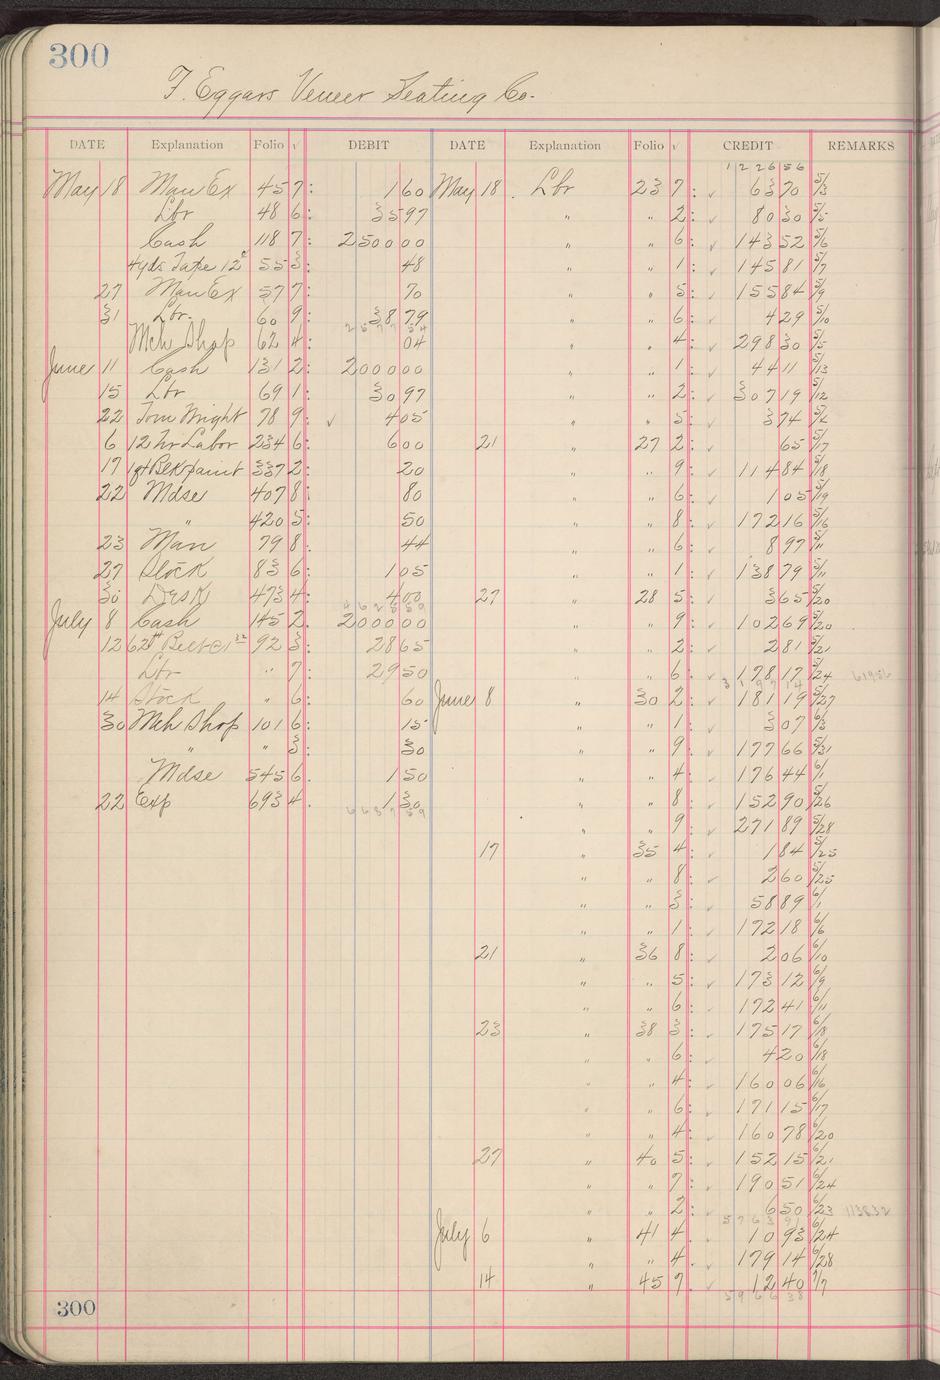 300
F. Eggars Veneer Seating Co.
DATE Explanation Folio √ DEBIT DATE Explanation Folio √ CREDIT REMARKS
1 2 2 6 5 6
May 18 Man Ex 45 7: 1 60 May 18 Lbr 23 7: ✓ 63 70 5/3
Lbr 48 6: 35 97 " " 2: ✓ 80 30 5/5
Cash 118 7: 2500 00 " " 6: ✓ 143 52 5/6
4 yds Tape 12¢ 55 3: 48 " " 1: ✓ 145 81 5/7
27 Man Ex 57 7: 70 " " 5: ✓ 155 84 5/9
31 Lbr. 60 9: 38 79 " " 6: ✓ 4 29 5/10
2577 54
Mch Shop 62 4: 04 " " 4: ✓ 298 30 5/5
June 11 Cash 131 2: 2000 00 " " 1: ✓ 44 11 5/13
15 Lbr 69 1: 30 97 " " 2: ✓ 307 19 5/12
22 Tom Wright 78 9: ✓ 4 05 " " 5: ✓ 3 74
6 12 hr Labor 234 6: 6 00 21 " 27 2: ✓ 65 5/17
17 1 qt Blk paint 337 2: 20 " " 9: ✓ 114 84 5/18
22 Mdse 407 8: 80 " " 6: ✓ 1 05 5/19
" 420 5: 50 " " 8: ✓ 172 16 5/16
23 Man 79 8: 44 " " 6: ✓ 8 97 5/11
27 Stock 83 6: 1 05 " " 1: ✓ 138 79 5/11
30 Desk 473 4: 4 00 27 " 28 5: ✓ 3 65 5/20
4625 59
July 8 Cash 145 2. 2000 00 " " 9: ✓ 102 69 5/20
12 62 ft Belt @ 92 3: 28 65 " " 2: ✓ 2 81 5/21
Lbr " 7: 29 50 " " 6: ✓ 178 17 5/24 61956
3197 14
14 Stock " 6: 60 June 8 " 30 2: ✓ 181 19 5/27
30 Mch Shop 101 6: 15 " " 1: ✓ 3 07 6/3
" " 3: 30 " " 9: ✓ 177 66 5/31
Mdse 545 6. 1 50 " " 4: ✓ 176 44 6/1
22 Exp 693 4. 1 30 " " 8: ✓ 152 90 5/26
6687 59
" " 9: ✓ 271 89 5/28
17 " 35 4: ✓ 1 84 5/25
" " 8: ✓ 2 60 5/25
" " 3: ✓ 58 89 6/1
" " 1: ✓ 172 18 6/6
21 " 36 8: ✓ 2 06 6/10
" " 5: ✓ 173 12 6/9
" " 6: ✓ 172 41 6/11
23 " 38 3: ✓ 175 17 6/18
" " 6: ✓ 4 20 6/18
" " 4: ✓ 160 06 6/16
" " 6: ✓ 171 15 6/17
" " 4: ✓ 160 78 6/20
27 " 40 5: ✓ 152 15 6/21
" " 7: ✓ 190 51 6/24
" " 2: ✓ 6 50 6/23 113832
5763 91
July 6 " 41 4: ✓ 10 93 6/24
" " 4. ✓ 179 14 6/28
14 " 45 7 ✓ 12 40 7/7
5966 38
300